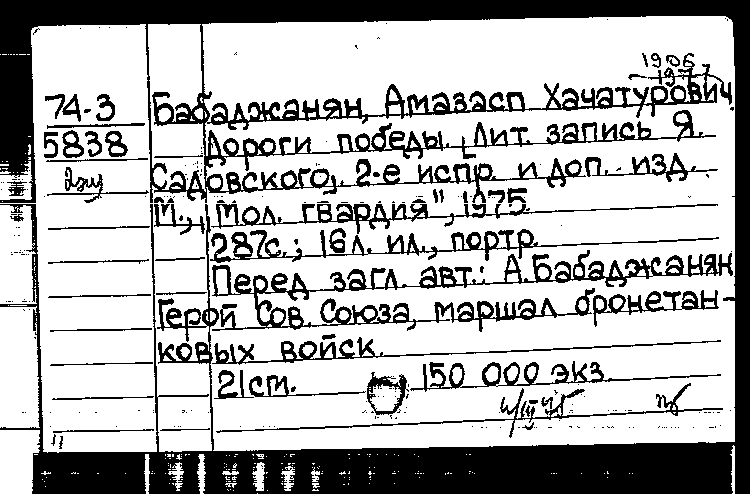 1906
1977
74-3 Бабаджанян, Амазасп Хачатурович
5838 Дороги победы. [Лит. запись Я.
2 экз Садовского]. 2-е испр. и доп. изд.
М., "Мол. гвардия", 1975.
287с.; 16 л. ил., портр.
Перед загл. авт.: А. Бабаджанян
Герой Сов. Союза, маршал бронетан-
ковых войск.
21 см. 150 000 экз.
11